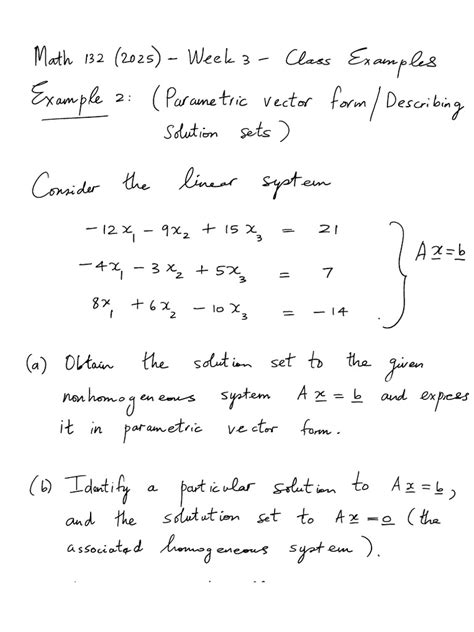 Math 132 (2025) - Week 3 - Class Examples
Example 2: (Parametric vector form/Describing
Solution sets)
Consider the linear system
-12x₁ - 9x₂ + 15x₃ = 21
-4x₁ - 3x₂ + 5x₃ = 7
A x = b
8x₁ + 6x₂ - 10x₃ = -14
(a) Obtain the solution set to the given
nonhomogeneous system A x = b and express
it in parametric vector form.
(b) Identify a particular solution to A x = b,
and the solutution set to A x = 0 (the
associated homogeneous system).